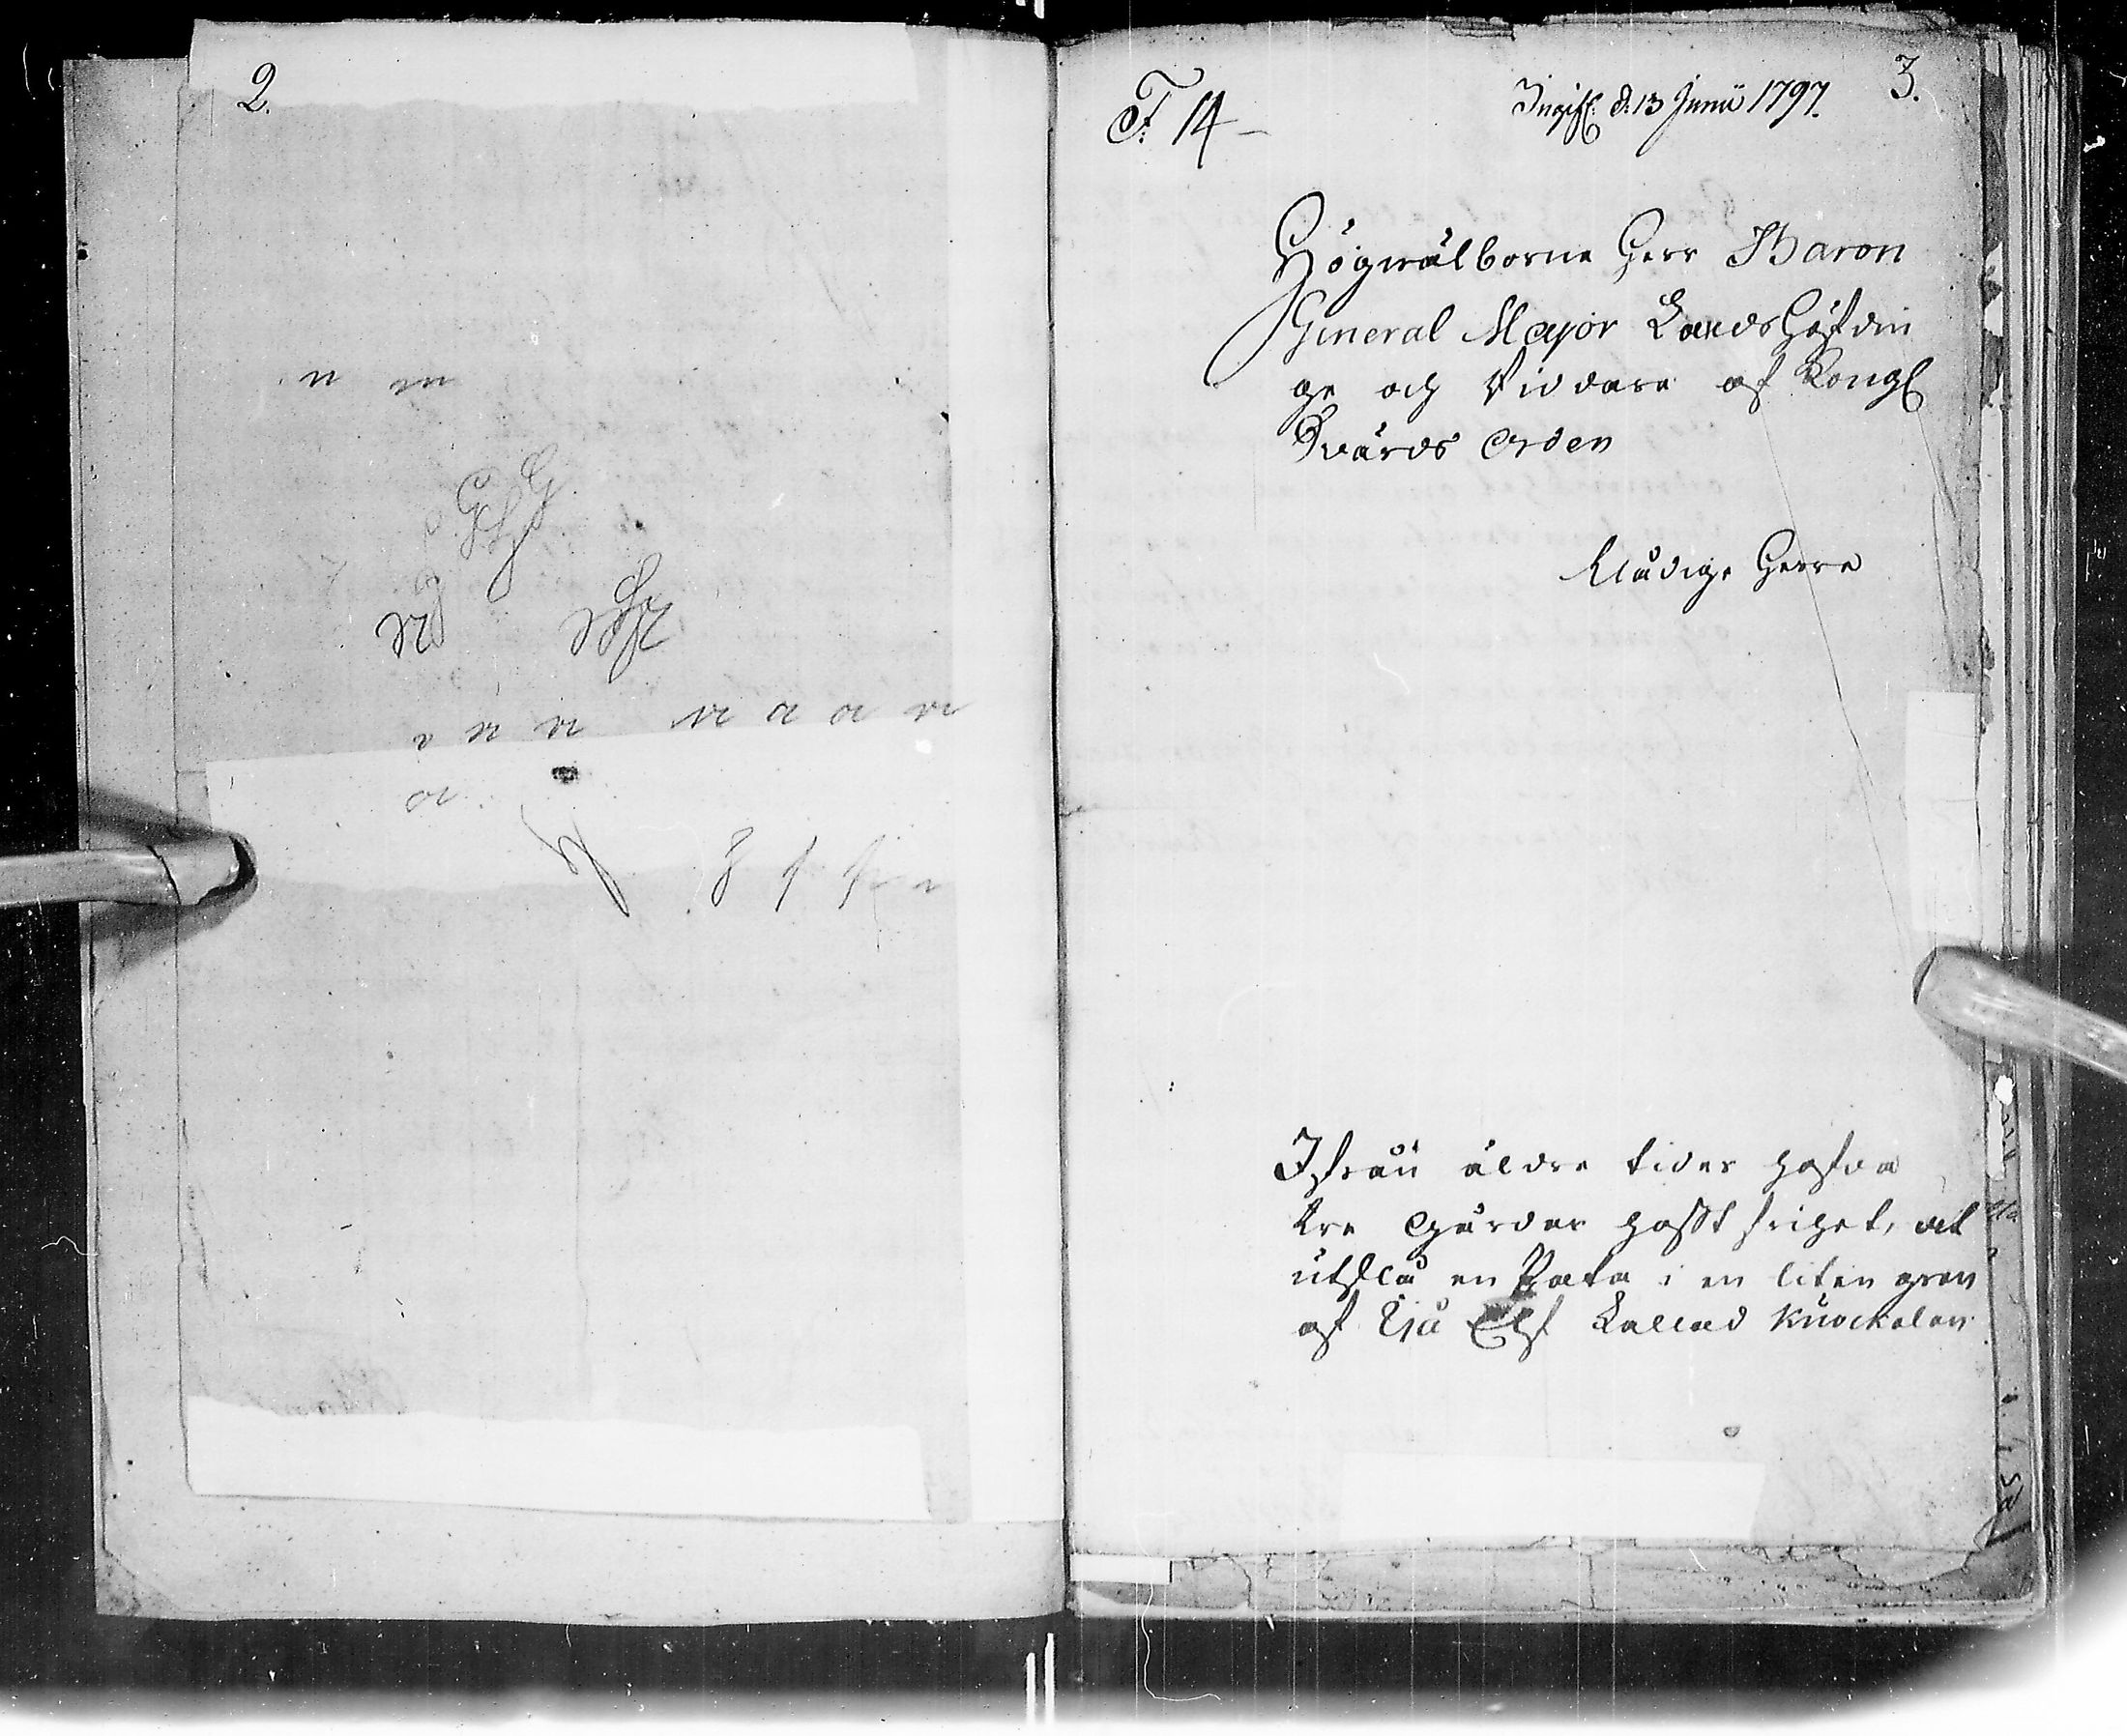 2.
n m
G G
N
n n n a a n
a
F: 14
Ingifl: d: 13 Junii 1797.
3.
Högwälborne Herr Baron
General Major Landshöfdin
ge och Riddare af Kongl
Swärds Orden
Nådige Herre
Ifrån äldre tider hafva
tre gårdar hafft frihet, at
utslå en Pata i en liten gren
af Kjå Elf kallad Knockelan